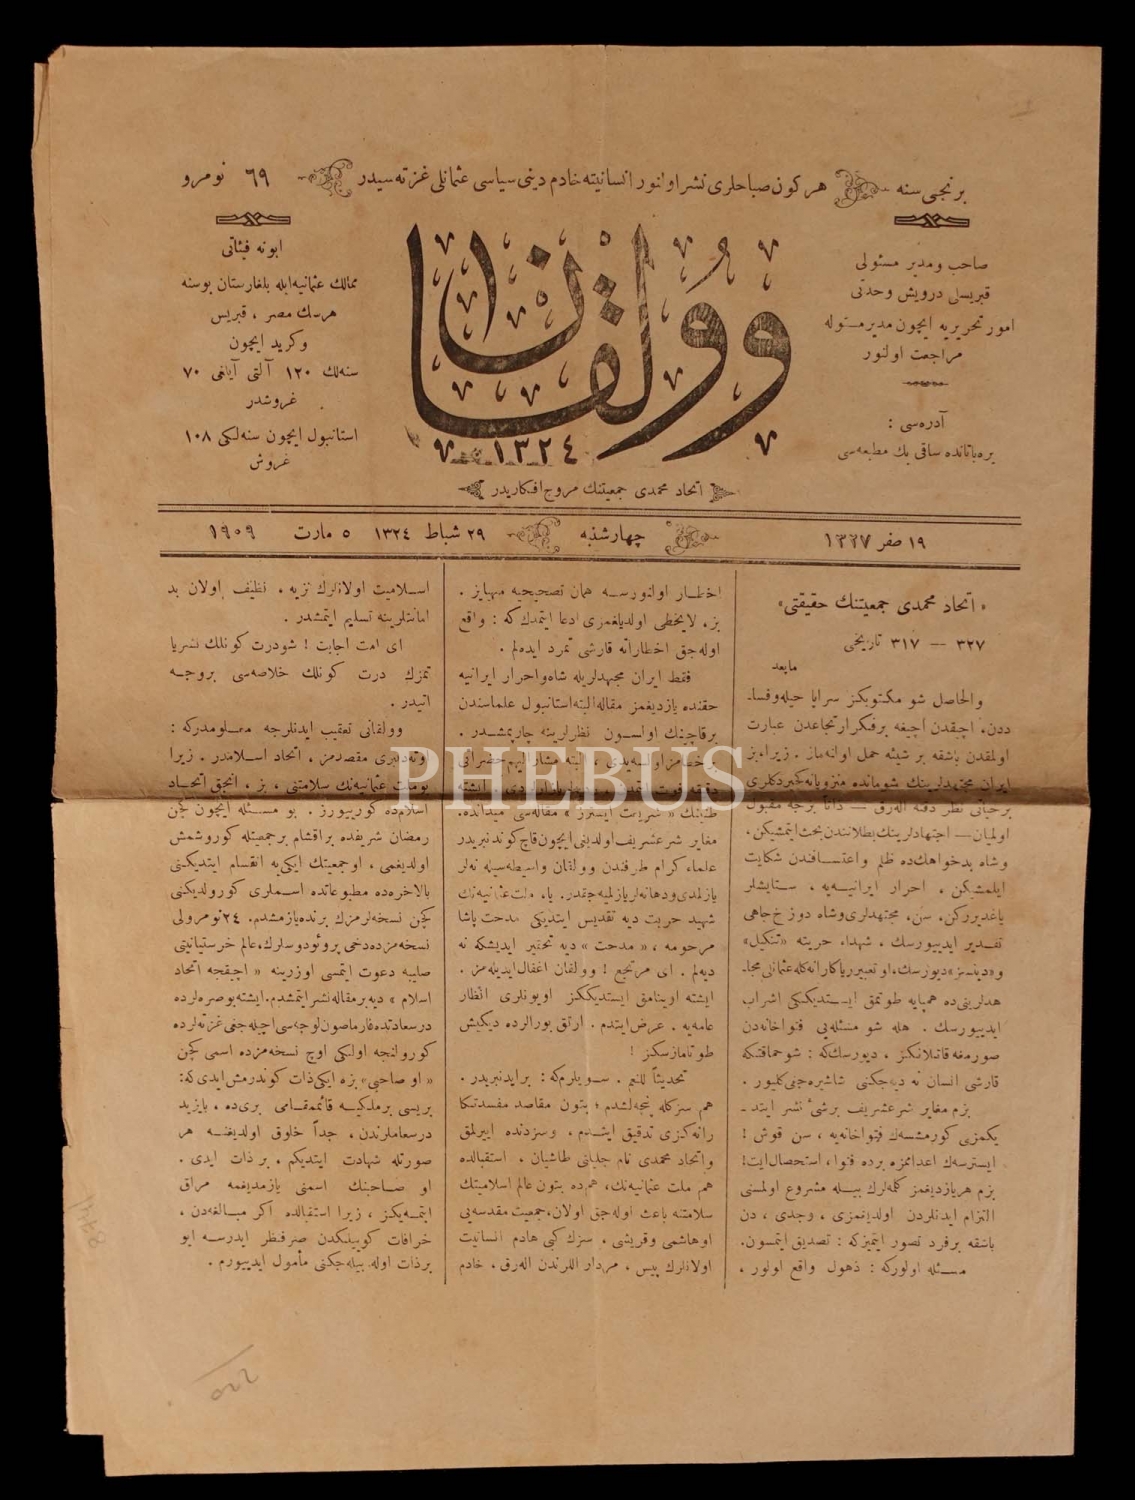 برنجی سنه
هر كون صباحلری نشر اولنور انسانیته خادم دینی سیاسی عثمانلی غزته سیدر
نومرو ٦٩
صاحب و مدیر مسئولی
قبریسلی درویش وحدتی
امور تحریریه ایچون مدیر مسئوله
مراجعت اولنور
آدره‌سی :
یره‌باتانده ساقی بك مطبعه‌سی
وولقان
١٣٢٤
ابونه فیئاتی
ممالك عثمانیه ایله بلغارستان بوسنه
هرسك مصر ، قبریس
وكرید ایچون
سنه‌لك ١٢٠ آلتی آیلغی ٧٠
غروشدر
استانبول ایچون سنه‌لكی ١٠٨
غروش
اتحاد محمدی جمعیتنك مروج افكاریدر
١٩ صفر ١٣٢٧
چهارشنبه
٢٩ شباط ١٣٢٤
٥ مارت ١٩٠٩
« اتحاد محمدی جمعیتنك حقیقتی »
٣٢٧ — ٣١٧ تاریخی
مابعد
والحاصل شو مكتوبكز سراپا حیله وفسا-
ددن، آچیقدن آچیغه بر فكر ارتجاعدن عبارت
اولمقدن باشقه بر شیئه حمل اولنه‌ماز . زیرا، بز
ایران مجتهدلرینك شو مانده
برحیاتی نظر دقته اله‌رق — ذاتاً برجه مقبول
اولمیان — اجتهادلرینك بطلانندن بحث ایتمشیكن،
وشاه بدخواهك ده ظلم واعتسافندن شكایت
ایلمشیكن ، احرار ایرانیه‌یه ، ستایشلر
یاغدیرركن، سن، مجتهدلری وشاه دوزخ جاهی
تقدیر ایدییورسك ، شهداء حریته «تنكیل»
هدلرینی ده همپایه طوتمق ایستدیككی اشراب
ایدییورسك . هله شو مسئله‌یی فتواخانه‌دن
صورمغه قالانكز ، دیورسك كه : شو حماقتكه
قارشی انسان نه دیه‌جكنی شاشیره‌جغی كلیور .
بزم مغایر شرع شریف برشیٔ نشر ایتد -
یكمزی كورمشسه‌ك فتواخانه‌یه ، سن قوش !
ایسترسه‌ك اعدامزه برده فتوا ، استحصال ایت!
بزم هر یازدیغمز كله‌لرك بیله مشروع اولمسنی
التزام ایدنلردن اولدیغمزی ، وجدی ، دن
باشقه برفرد تصور ایتمیز كه : تصدیق ایتمسون.
مسئله اولوركه : ذهول واقع اولور ،
اخطار اولنورسه همان تصحیحیه مهیایز .
بز، لایخطی اولدیغمزی ادعا ایتمدك كه : واقع
اوله‌جق اخطاراته قارشی تمرد ایده‌لم .
فقط ایران مجتهدلریله شاه واحرار ایرانیه
حقنده یازدیغمز مقاله البته استانبول علماسندن
برقاچنك اولسون نظرلرینه چارپمشدر .
بر خطامز اولسه‌یدی ، البته مشار الیهم حضراتی
طنینك « شریعت ایسترز » مقاله‌سی میدانده.
مغایر شرع شریف اولدیغی ایچون قاچ كوندنبریدر
علماء كرام طرفندن وولقان واسطه‌سیله نه‌لر
یازلمدی ودها نه‌لر یازلمیه‌جقدر. یا، ملت عثمانیه‌نك
شهید حریت دیه تقدیس ایتدیكی مدحت پاشا
مرحومه ، « مدحت » دیه تحقیر ایدیشكه نه
دیه‌لم . ای مرتجع ! وولقان اغفال ایدیله‌مز .
ایشته اوینامق ایستدیككز اویونلری انظار
عامه‌یه ، عرض ایتدم . ارتق بورالرده دیكیش
طوتامازسكز !
تحدیثاً للنعم . سویلرم كه : برایدنبریدر .
هم سزكله پنجه‌لشدم ، بتون مقاصد مفسدتكا
رانه‌كزی تدقیق ایتدم . وسزدنده ایرلمق
واتحاد محمدی نام جلیلنی طاشیان ، استقبالده
هم ملت عثمانیه‌نك، هم‌ده بتون عالم اسلامیتك
سلامتنه باعث اوله‌جق اولان، جمعیت مقدسه‌یی
اوهاشمی وقریشی ، سزك كبی هادم انسانیت
اولانلرك پیس ، مردار اللرندن اله‌رق ، خادم
اسلامیت اولانلرك نزیه ، نظیف اولان ید
امانتلرینه تسلیم ایتمشدر .
ای امت اجابت ! شو درت كونلك نشریا
تمزك درت كونلك خلاصه‌سی بروجه
آتیدر .
وولقانی تعقیب ایدنلرجه معلومدركه :
اوته‌دنبری مقصدمز ، اتحاد اسلامدر . زیرا
بوملت عثمانیه‌نك سلامتنی ، بز ، انجق اتحاد
اسلامده كورییورز . بو مسئله ایچون كچن
رمضان شریفده براقشام برجمعیتله كوروشمش
اولدیغمی ، اوجمعیتك ایكی‌یه انقسام ایتدیكنی
بالاخره‌ده مطبوعاتده اسملری كورولدیكنی
كچن نسخه‌لرمزك برنده یازمشدم. ٢٤ نومرولی
نسخه‌مزده دخی پروئودوسلرك، عالم خرستیانیتی
صلیبه دعوت ایتمسی اوزرینه « آچیقجه اتحاد
اسلام » دیه برمقاله نشر ایتمشدم. ایشته بوصره‌لرده
درسعادتده فارماصون لوجه‌سی اچیله‌جغی غزته‌لرده
كورولنجه اولكی اوچ نسخه‌مزده اسمی كچن
« او صاحبی» بزه ایكی ذات كوندرمش ایدی كه:
بریسی برملكیه قائممقامی بری‌ده ، بایزید
درسعاملرندن، جداً خلوق اولدیغنه هر
صورتله شهادت ایتدیكم ، برذات ایدی .
او صاحبنك اسمنی یازمدیغمه مراق
ایتمه‌یكز ، زیرا استقبالده اكر مبالغه‌دن ،
خرافات كوییلكدن صرفنظر ایدرسه ایو
برذات اوله بیله‌جكنی مأمول ایدییورم .
PHEBUS